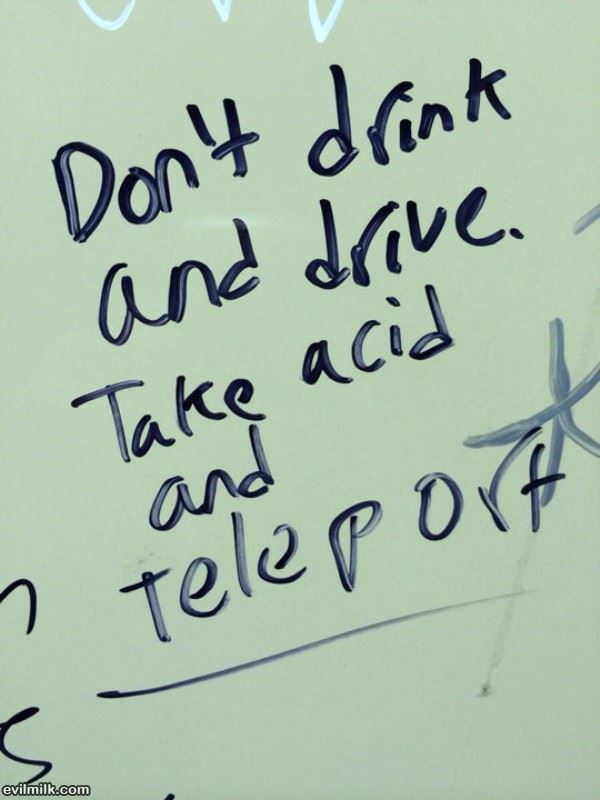 Don't drink
and drive.
Take acid
and
teleport
evilmilk.com